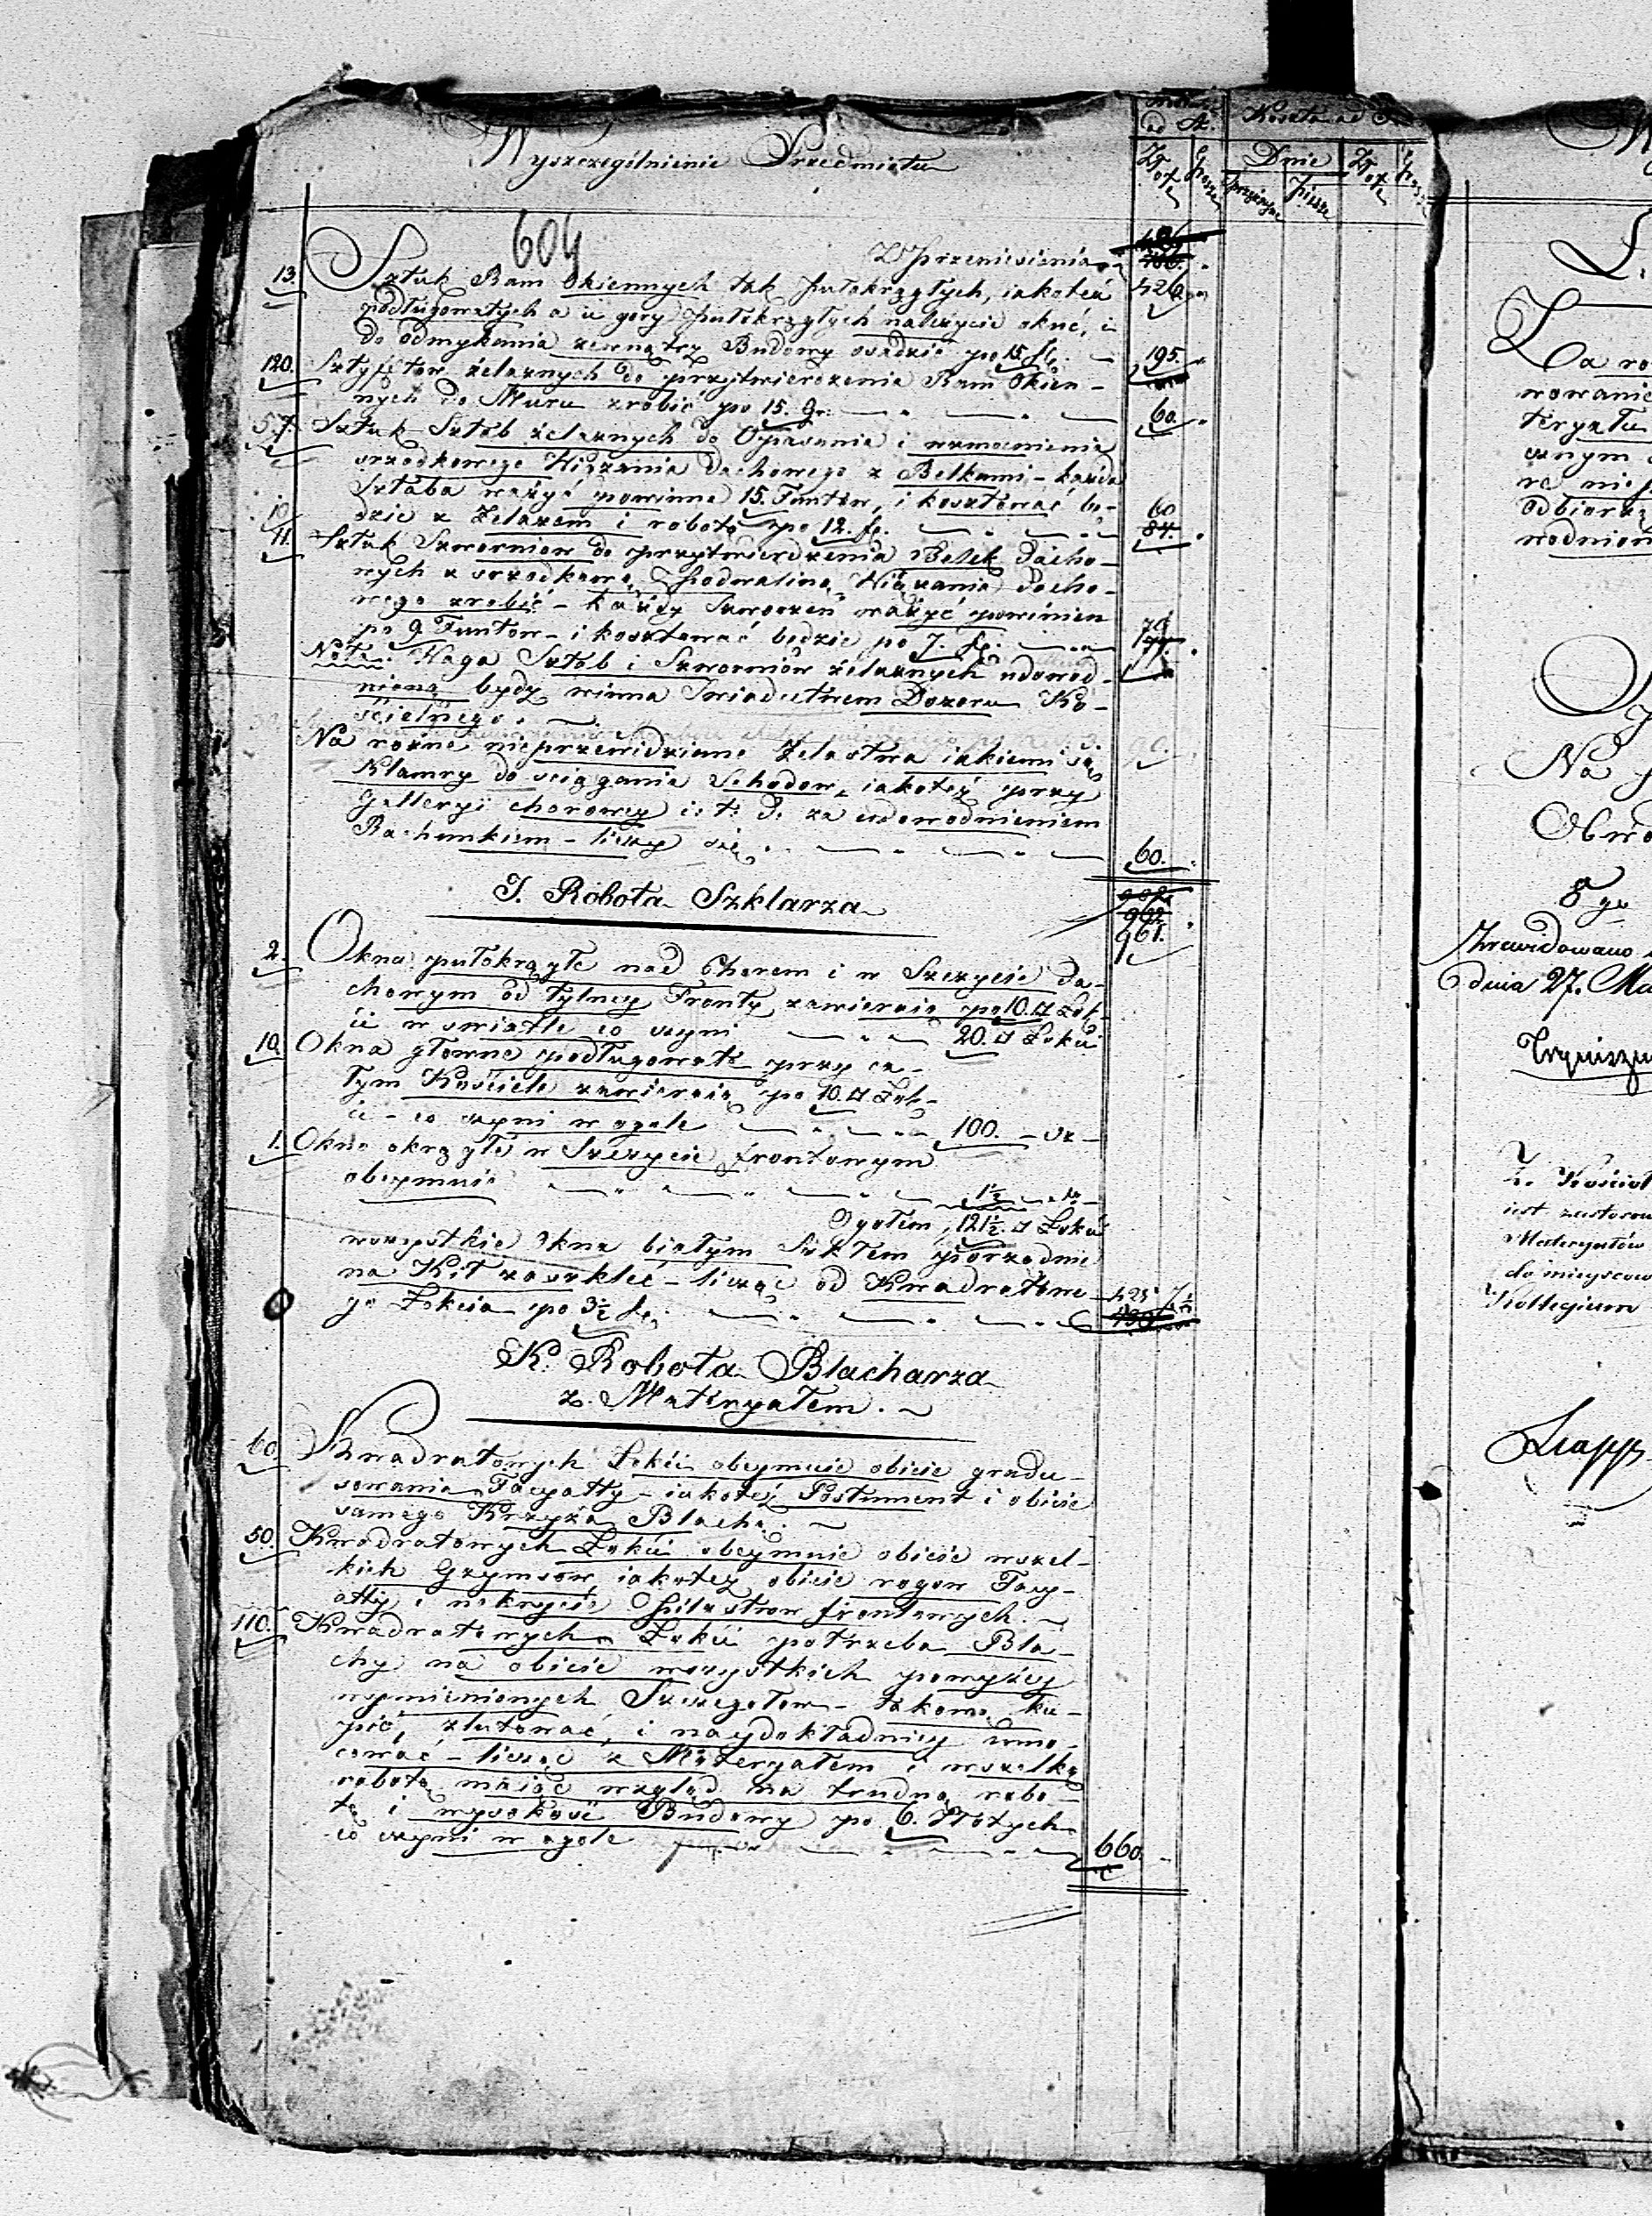 Wyszczególnienie Przedmiotu
Koszta ad
Złote Grosze Dnie Złote
Sprzężayne Piesze
604
Z Przeniesienia
13. Sztuk Ram Okiennych tak pułokrągłych, iakoteż 426
podługowatych a u góry pułokrągłych należycie okuć, i
do odmykania zewnątrz Budowy osadzić po 15 fl. 195.
120. Sztyftow żelaznych do przytwierdzenia Ram Okien-
nych do Muru zrobić po 15. Gr. 60.
5. 7. Sztuk Sztab żelaznych do Opasania i wzmocnienia
srzodkowego Wiązania Dachowego z Belkami - każda
Sztaba ważyć powinna 15. Funtow, i kosztować bę- 60
dzie z Żelazem i robotą po 12. fl. 84.
10
11. Sztuk Szworniow do przytwierdzenia Belek Dacho-
wych z srzodkową Podwaliną Wiązania Dacho-
wego zrobić - każdy Szworzeń ważyć powinien 70
po 9 Funtow - i kosztować będzie po 7. fl. 77.
Nota. Waga Sztab i Szworniów żelaznych udowod-
nioną bydź winna Swiadectwem Dozoru Ko-
scielnego.
Na rożne nieprzewidziane Żelastwa iakiemi są
Klamry do sciągania Schodow, iakoteż przy
Galleryi chorowey i: t: d: za udowodnieniem
Rachunkiem - liczy się 60.
962
961.
J. Robota Szklarza
2. Okna pułokrągłe nad Chorem i w Szczycie Da-
chowym od tylney Fronty zawieraią po 10. □ Łok-
ci w swiatle co czyni 20. □ Łokci
10. Okna głowne podługowate przy ca-
łym Kościele zawieraią po 10. □ Łok-
ci - co czyni w ogole 100. - dt -
1. Okno okrągłe w Szczycie frontowym
obeymuie 1½ - dt -
Ogołem 121½ □ Łokci
wszystkie Okna białym Szkłem porządnie
na Kit zaszkleć - licząc od Kwadratowe- 425 7½
go Łokcia po 3½ fl.
K. Robota Blacharza
z. Materyałem.
60. Kwadratowych Łokci obeymuie obicie gradu-
sowania Facyatty - iakoteż Postument i obicie
samego Krzyża Blachą.
50. Kwadratowych Łokci obeymuie obicie wszel-
kich Gzymsow, iakoteż obicie rogow Facy-
atty i nakrycie Pilastrow frontowych.
110. Kwadratowych Łokci potrzeba Bla-
chy na obicie wszystkich powyżey
wymienionych Szczegołow - takową ku-
pić, zlutować, i naydokładniey umo-
cować - licząc z Materyałem i wszelką
robotą maiąc wzgląd na trudną robo-
tę i wysokość Budowy po 6. Złotych
co czyni w ogole 660.
Za ro
wowanie
teryału
cznym
odbiorz
wodnion
Na
Obwo
8go
Zrewidowano
dnia 27. Ma
2. Kościoł
iest zastosow
Materyałów
do mieyscow
Kollegium